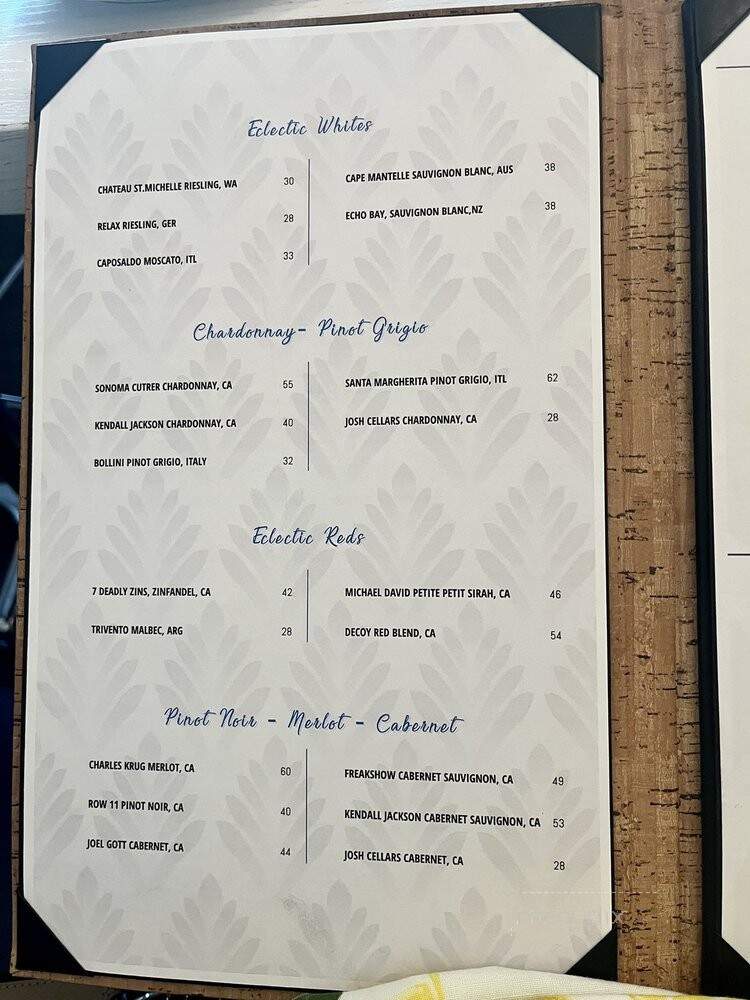 Eclectic Whites
CHATEAU ST.MICHELLE RIESLING, WA 30
RELAX RIESLING, GER 28
CAPOSALDO MOSCATO, ITL 33
CAPE MANTELLE SAUVIGNON BLANC, AUS 38
ECHO BAY, SAUVIGNON BLANC,NZ 38
Chardonnay- Pinot Grigio
SONOMA CUTRER CHARDONNAY, CA 55
KENDALL JACKSON CHARDONNAY, CA 40
BOLLINI PINOT GRIGIO, ITALY 32
SANTA MARGHERITA PINOT GRIGIO, ITL 62
JOSH CELLARS CHARDONNAY, CA 28
Eclectic Reds
7 DEADLY ZINS, ZINFANDEL, CA 42
TRIVENTO MALBEC, ARG 28
MICHAEL DAVID PETITE PETIT SIRAH, CA 46
DECOY RED BLEND, CA 54
Pinot Noir - Merlot - Cabernet
CHARLES KRUG MERLOT, CA 60
ROW 11 PINOT NOIR, CA 40
JOEL GOTT CABERNET, CA 44
FREAKSHOW CABERNET SAUVIGNON, CA 49
KENDALL JACKSON CABERNET SAUVIGNON, CA 53
JOSH CELLARS CABERNET, CA 28